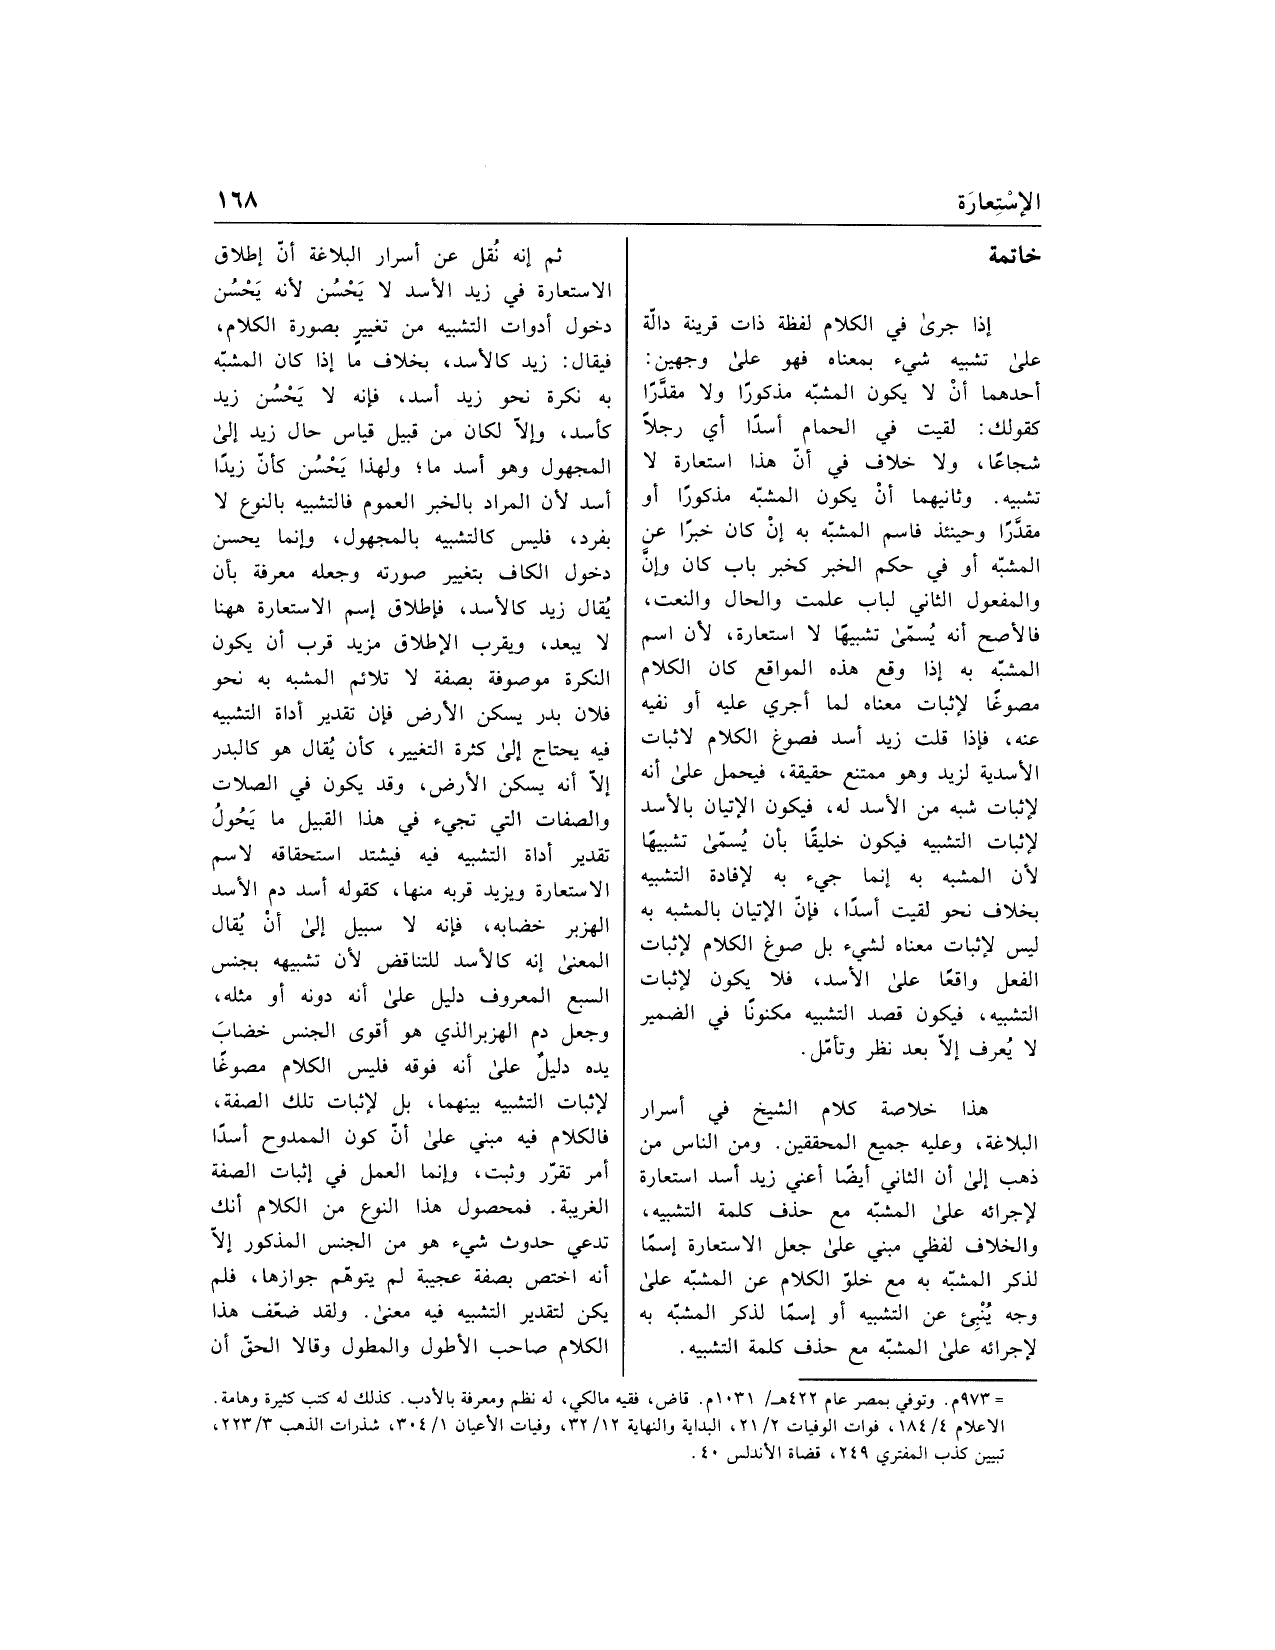 الإسْتِعارَة
١٦٨
خاتمة
إذا جرىٰ في الكلام لفظة ذات قرينة دالّة
علىٰ تشبيه شيء بمعناه فهو علىٰ وجهين:
أحدهما أنْ لا يكون المشبّه مذكورًا ولا مقدَّرًا
كقولك: لقيت في الحمام أسدًا أي رجلاً
شجاعًا، ولا خلاف في أنّ هذا استعارة لا
تشبيه. وثانيهما أنْ يكون المشبّه مذكورًا أو
مقدَّرًا وحينئذ فاسم المشبّه به إنْ كان خبرًا عن
المشبّه أو في حكم الخبر كخبر باب كان وإنَّ
والمفعول الثاني لباب علمت والحال والنعت،
فالأصح أنه يُسمّىٰ تشبيهًا لا استعارة، لأن اسم
المشبّه به إذا وقع هذه المواقع كان الكلام
مصوغًا لإثبات معناه لما أجري عليه أو نفيه
عنه، فإذا قلت زيد أسد فصوغ الكلام لاثبات
الأسدية لزيد وهو ممتنع حقيقة، فيحمل علىٰ أنه
لإثبات شبه من الأسد له، فيكون الإتيان بالأسد
لإثبات التشبيه فيكون خليقًا بأن يُسمّىٰ تشبيهًا
لأن المشبه به إنما جيء به لإفادة التشبيه
بخلاف نحو لقيت أسدًا، فإنّ الإتيان بالمشبه به
ليس لإثبات معناه لشيء بل صوغ الكلام لإثبات
الفعل واقعًا علىٰ الأسد، فلا يكون لإثبات
التشبيه، فيكون قصد التشبيه مكنونًا في الضمير
لا يُعرف إلاّ بعد نظر وتأمّل.
هذا خلاصة كلام الشيخ في أسرار
البلاغة، وعليه جميع المحققين. ومن الناس من
ذهب إلىٰ أن الثاني أيضًا أعني زيد أسد استعارة
لإجرائه علىٰ المشبّه مع حذف كلمة التشبيه،
والخلاف لفظي مبني علىٰ جعل الاستعارة إسمًا
لذكر المشبّه به مع خلوّ الكلام عن المشبّه علىٰ
وجه يُنْبِئ عن التشبيه أو إسمًا لذكر المشبّه به
لإجرائه علىٰ المشبّه مع حذف كلمة التشبيه.
ثم إنه نُقل عن أسرار البلاغة أنّ إطلاق
الاستعارة في زيد الأسد لا يَحْسُن لأنه يَحْسُن
دخول أدوات التشبيه من تغييرٍ بصورة الكلام،
فيقال: زيد كالأسد، بخلاف ما إذا كان المشبّه
به نكرة نحو زيد أسد، فإنه لا يَحْسُن زيد
كأسد، وإلاّ لكان من قبيل قياس حال زيد إلىٰ
المجهول وهو أسد ما؛ ولهذا يَحْسُن كأنّ زيدًا
أسد لأن المراد بالخبر العموم فالتشبيه بالنوع لا
بفرد، فليس كالتشبيه بالمجهول، وإنما يحسن
دخول الكاف بتغيير صورته وجعله معرفة بأن
يُقال زيد كالأسد، فإطلاق إسم الاستعارة ههنا
لا يبعد، ويقرب الإطلاق مزيد قرب أن يكون
النكرة موصوفة بصفة لا تلائم المشبه به نحو
فلان بدر يسكن الأرض فإن تقدير أداة التشبيه
فيه يحتاج إلىٰ كثرة التغيير، كأن يُقال هو كالبدر
إلاّ أنه يسكن الأرض، وقد يكون في الصلات
والصفات التي تجيء في هذا القبيل ما يَحُولُ
تقدير أداة التشبيه فيه فيشتد استحقاقه لاسم
الاستعارة ويزيد قربه منها، كقوله أسد دم الأسد
الهزبر خضابه، فإنه لا سبيل إلىٰ أنْ يُقال
المعنىٰ إنه كالأسد للتناقض لأن تشبيهه بجنس
السبع المعروف دليل علىٰ أنه دونه أو مثله،
وجعل دم الهزبرالذي هو أقوى الجنس خضابَ
يده دليلٌ علىٰ أنه فوقه فليس الكلام مصوغًا
لإثبات التشبيه بينهما، بل لإثبات تلك الصفة،
فالكلام فيه مبني علىٰ أنّ كون الممدوح أسدًا
أمر تقرّر وثبت، وإنما العمل في إثبات الصفة
الغريبة. فمحصول هذا النوع من الكلام أنك
تدعي حدوث شيء هو من الجنس المذكور إلاّ
أنه اختص بصفة عجيبة لم يتوهّم جوازها، فلم
يكن لتقدير التشبيه فيه معنىٰ. ولقد ضعّف هذا
الكلام صاحب الأطول والمطول وقالا الحقّ أن
= ٩٧٣م. وتوفي بمصر عام ٤٢٢هـ/ ١٠٣١م. قاض، فقيه مالكي، له نظم ومعرفة بالأدب. كذلك له كتب كثيرة وهامة.
الاعلام ٤/ ١٨٤، فوات الوفيات ٢/ ٢١، البداية والنهاية ١٢/ ٣٢، وفيات الأعيان ١/ ٣٠٤، شذرات الذهب ٣/ ٢٢٣،
تبيين كذب المفتري ٢٤٩، قضاة الأندلس ٤٠.